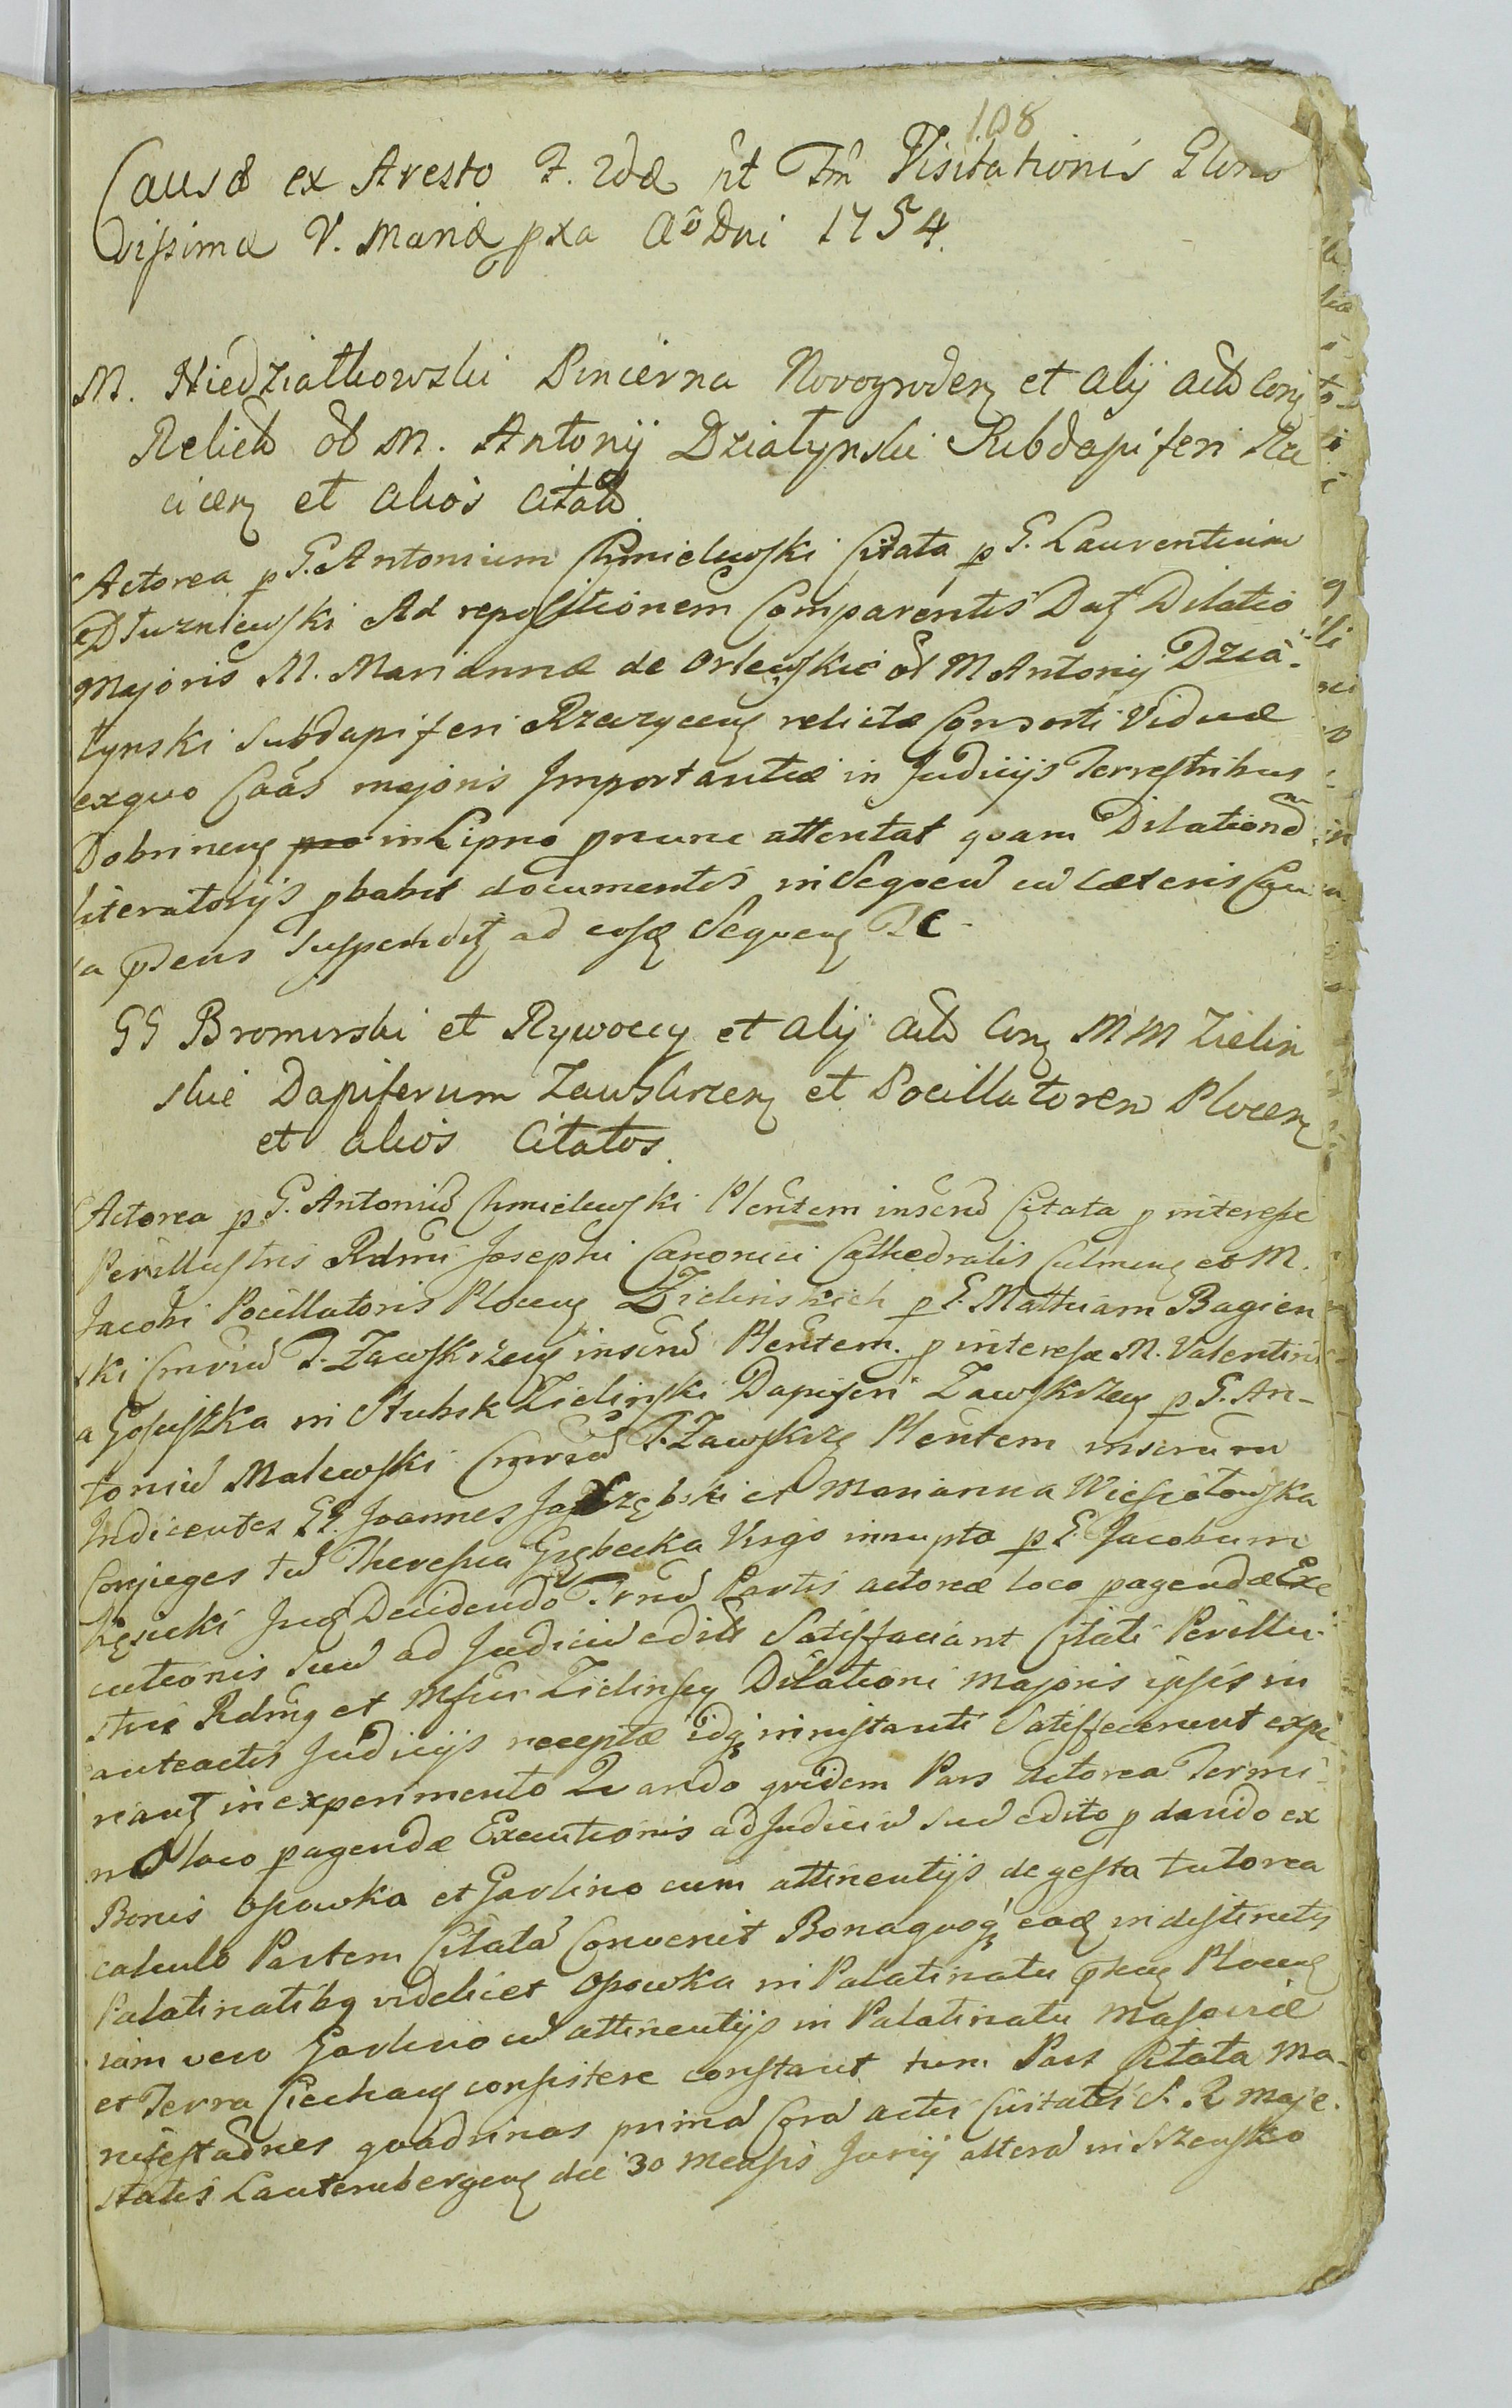 108
Causæ ex Aresto F. 2dæ pt Tm Visitationis Glorio
Vissimæ V. Mariæ pxa Aō Dni 1754.
M. Niedziałkowski Pincerna Novogroden et alij acts Con
Relict ol M. Antonij Działynski Subdapiferi Rza
cicen et alios citatd
Actorea p G. Antonium Chmielewski Citata p G. Laurentium
Dłuzniewski Ad repositionem Comparentis Datz Dilatio
Majoris M. Mariannæ de Orlewskie ol M Antonij Dzia-
łynski Subdapiferi Rzeczyceng relictæ Consorti Viduæ
exquo Caās majoris Importantiæ in Judicijs Terrestribus
Dobrineng in Lipno pnunc attentat quam Dilationē
literatorijs pbabit documentis in Sequen cū cæteris Cau
sa pdens Suspenditz ad eosq Sequeng Dc-
GG Bromirski et Rywoccy et alij acts Con MM Zielin
skie Dapiferum Zawskrzen et Pocillatorem Plocen
et alios Citatos.
Actorea p G. Antoniū Chmielewski Plentem inscrd Citata p interesse
Perillustris Rdmi Josephi Canonici Cathedralis Culmeng et M.
Jacobi Pocillatoris Ploceng Zielinskich p G. Mathiam Bagien
ski T. Zawskrzeng inscrd Plentem. p interesse M. Valentini
a Gosustka in Stubsk Zielinski Dapiferi Zawskrzeng p G. An-
toniū Malewski T. Zawskrz Plentem inscrum
Indicentes GG. Joannes Jastrzębski et Marianna Wiesiołowska
Conjuges tū Theresia Grzbecka Virgo innupta p G. Jacobum
Kęsicki Juq Decidendo Trnū Partis actoreæ loco pagendæ Exe
cutionis suū ad Judiciū edit Satisfaciant Citati Perillu-
stris Rdmg et Mfcus Zielinscy Dilationi majoris ipsis in
anteactis Judicijs receptæ idq in instanti Satisfecerunt expe
riantz in experimento Quando quidem Pars actorea Termi
nō loco pagendæ Executionis ad Judiciū suū edito p dando ex
Bonis Osowka et Garlino cum attinentijs de gesta tutorea
calculo Partem Citatā Convenit Bonaquoq eadz in distinctis
Palatinatibg videlicet Osowka in Palatinatu pteng Ploceng
iam vero Garlino cū attinentijs in Palatinatu Masoviæ
et Terra Ciechang consistere constant tum Pars Citata Ma-
nifestaōnes quadrinas primā Corā actis Civitatis S. R. Maje-
statis Lautembergeng die 30 Mensis Junij alterā in Srzensko